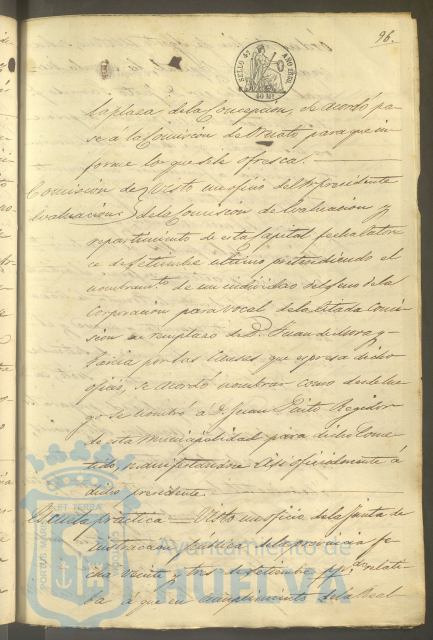 96.
SELLO 4º AÑO 1860
40 Ms
la plaza de la Concepcion, se acordó pa-
se á la Comision de Ornato para que in-
forme lo que se le ofresca.
Comision de Visto un oficio del Sr presidente
evaluacion de la Comision de Evaluacion y
repartimiento de esta Capital fecha cator-
ce de setiembre ultimo pretendiendo el
nombramto de un individuo del seno de la
Corporacion para vocal de la citada Comi-
sion en remplazo de D. Juan de Mora y
Garcia por las causas que espresa dicho
oficio, se acordó nombrar como desde lue-
go se nombró á D. Juan Regidor
de esta Municipalidad para dicho come-
tido, manifestandose asi oficialmente á
dicho presidente.
Escuela practica Visto un oficio de la Junta de
instruccion publica de la provincia fe-
cha veinte y tres de setiembre relati-
va á que en cumplimiento de la Real
Ayuntamiento de
HUELVA
PORTUS MARIS ET TERRÆ CUSTODIA